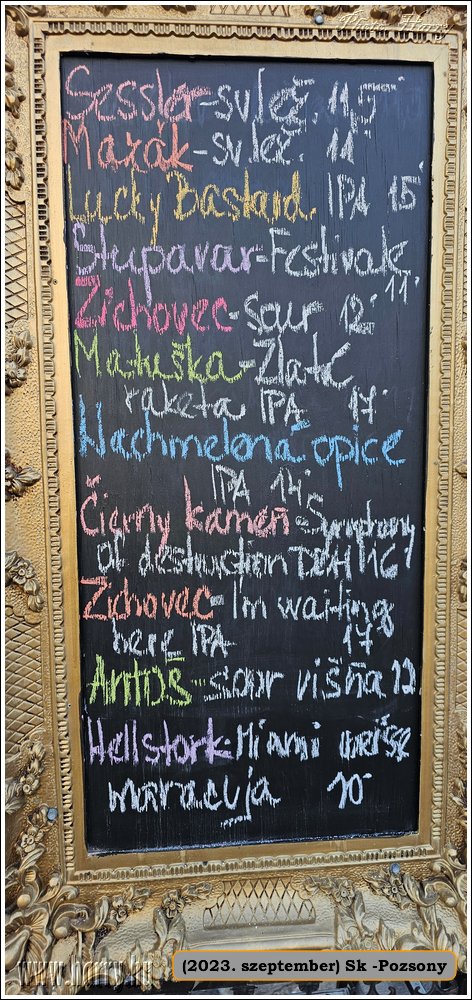 Photo: Harry
Sessler-sv.lež. 11,5°
Mazák-sv.lež. 11°
Lucky Bastard. IPA 15°
Stupavar-Festivale
11°
Zichovec-Sour 12°
Matuška-Zlatá
raketa IPA 17°
Nachmelená opice
IPA 14°
Čierny kameň-Symphony
of destruction DDH 16°
Zichovec-Im waiting
here IPA 17°
ANTOŠ-sour višňa 12°
Hellstork-Miami weiße
maracuja 10°
www.harry.hu
(2023. szeptember) Sk -Pozsony